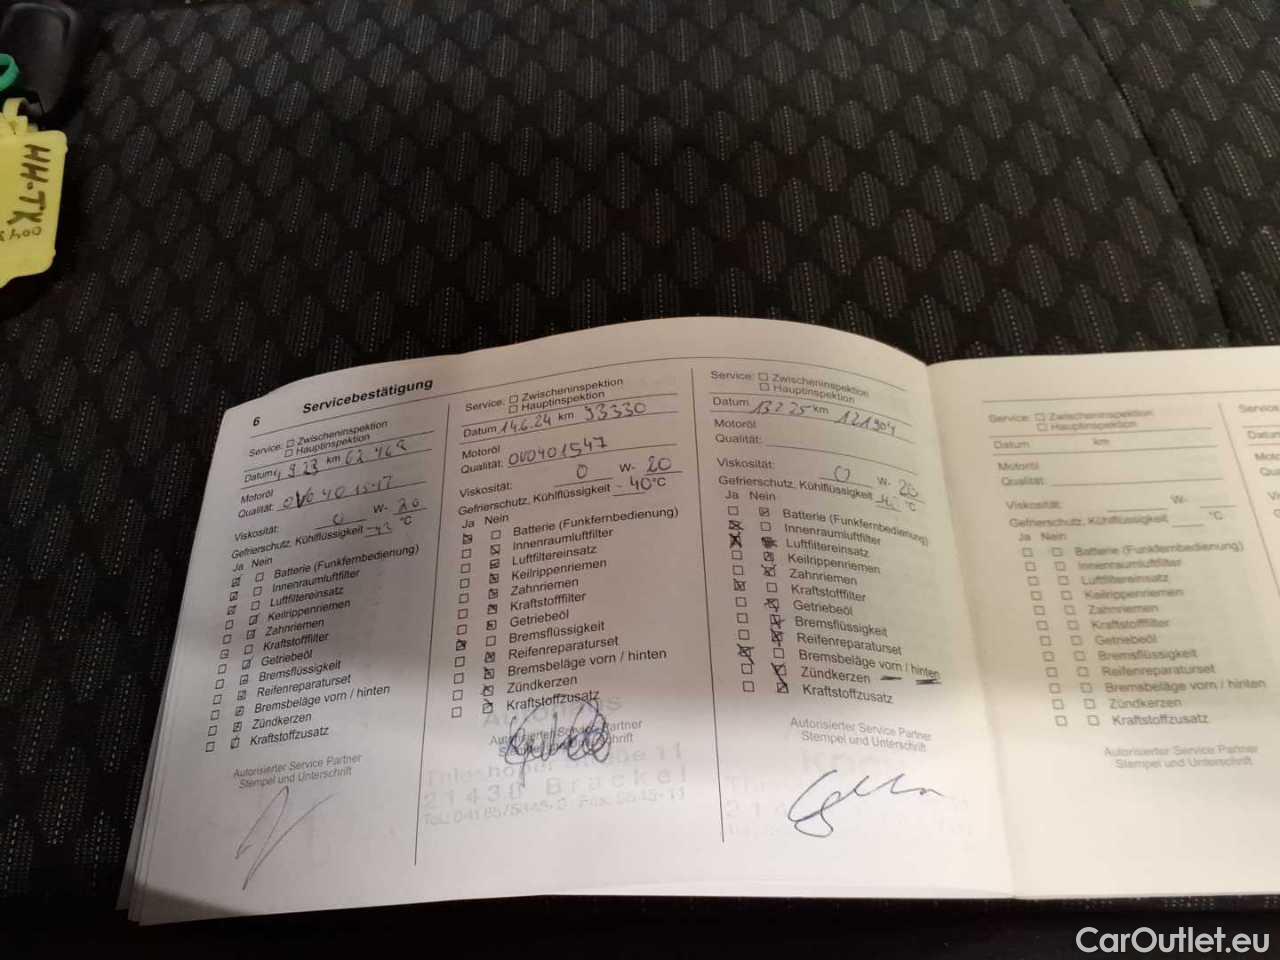 HH-TK
6
Servicebestätigung
Service: Zwischeninspektion
Hauptinspektion
Datum 1.9.23 km
Motoröl
Qualität: 0V0401547
Viskosität: 0 W- 20
Gefrierschutz, Kühlflüssigkeit °C
Ja Nein
Batterie (Funkfernbedienung)
Innenraumluftfilter
Luftfiltereinsatz
Keilrippenriemen
Zahnriemen
Kraftstofffilter
Getriebeöl
Bremsflüssigkeit
Reifenreparaturset
Bremsbeläge vorn / hinten
Zündkerzen
Kraftstoffzusatz
Autorisierter Service Partner
Stempel und Unterschrift
Service: Zwischeninspektion
Hauptinspektion
Datum 14.6.24 km 93330
Motoröl
Qualität: 0V0401547
Viskosität: 0 W- 20
Gefrierschutz, Kühlflüssigkeit -40°C
Ja Nein
Batterie (Funkfernbedienung)
Innenraumluftfilter
Luftfiltereinsatz
Keilrippenriemen
Zahnriemen
Kraftstofffilter
Getriebeöl
Bremsflüssigkeit
Reifenreparaturset
Bremsbeläge vorn / hinten
Zündkerzen
Kraftstoffzusatz
Autorisierter Service Partner
Stempel und Unterschrift
21438 Brackel
Service: Zwischeninspektion
Hauptinspektion
Datum 13.2.25 km 121904
Motoröl
Qualität:
Viskosität: 0 W- 20
Gefrierschutz, Kühlflüssigkeit °C
Ja Nein
Batterie (Funkfernbedienung)
Innenraumluftfilter
Luftfiltereinsatz
Keilrippenriemen
Zahnriemen
Kraftstofffilter
Getriebeöl
Bremsflüssigkeit
Reifenreparaturset
Bremsbeläge vorn / hinten
Zündkerzen
Kraftstoffzusatz
Autorisierter Service Partner
Stempel und Unterschrift
Service: Zwischeninspektion
Hauptinspektion
Datum km
Motoröl
Qualität:
Viskosität: W-
Gefrierschutz, Kühlflüssigkeit °C
Ja Nein
Batterie (Funkfernbedienung)
Innenraumluftfilter
Luftfiltereinsatz
Keilrippenriemen
Zahnriemen
Kraftstofffilter
Getriebeöl
Bremsflüssigkeit
Reifenreparaturset
Bremsbeläge vorn / hinten
Zündkerzen
Kraftstoffzusatz
Autorisierter Service Partner
Stempel und Unterschrift
CarOutlet.eu